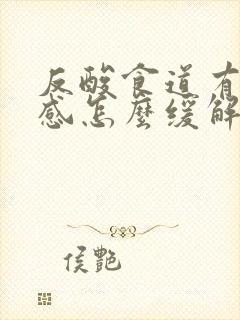 反酸食道有
感怎麼緩解
侯艷